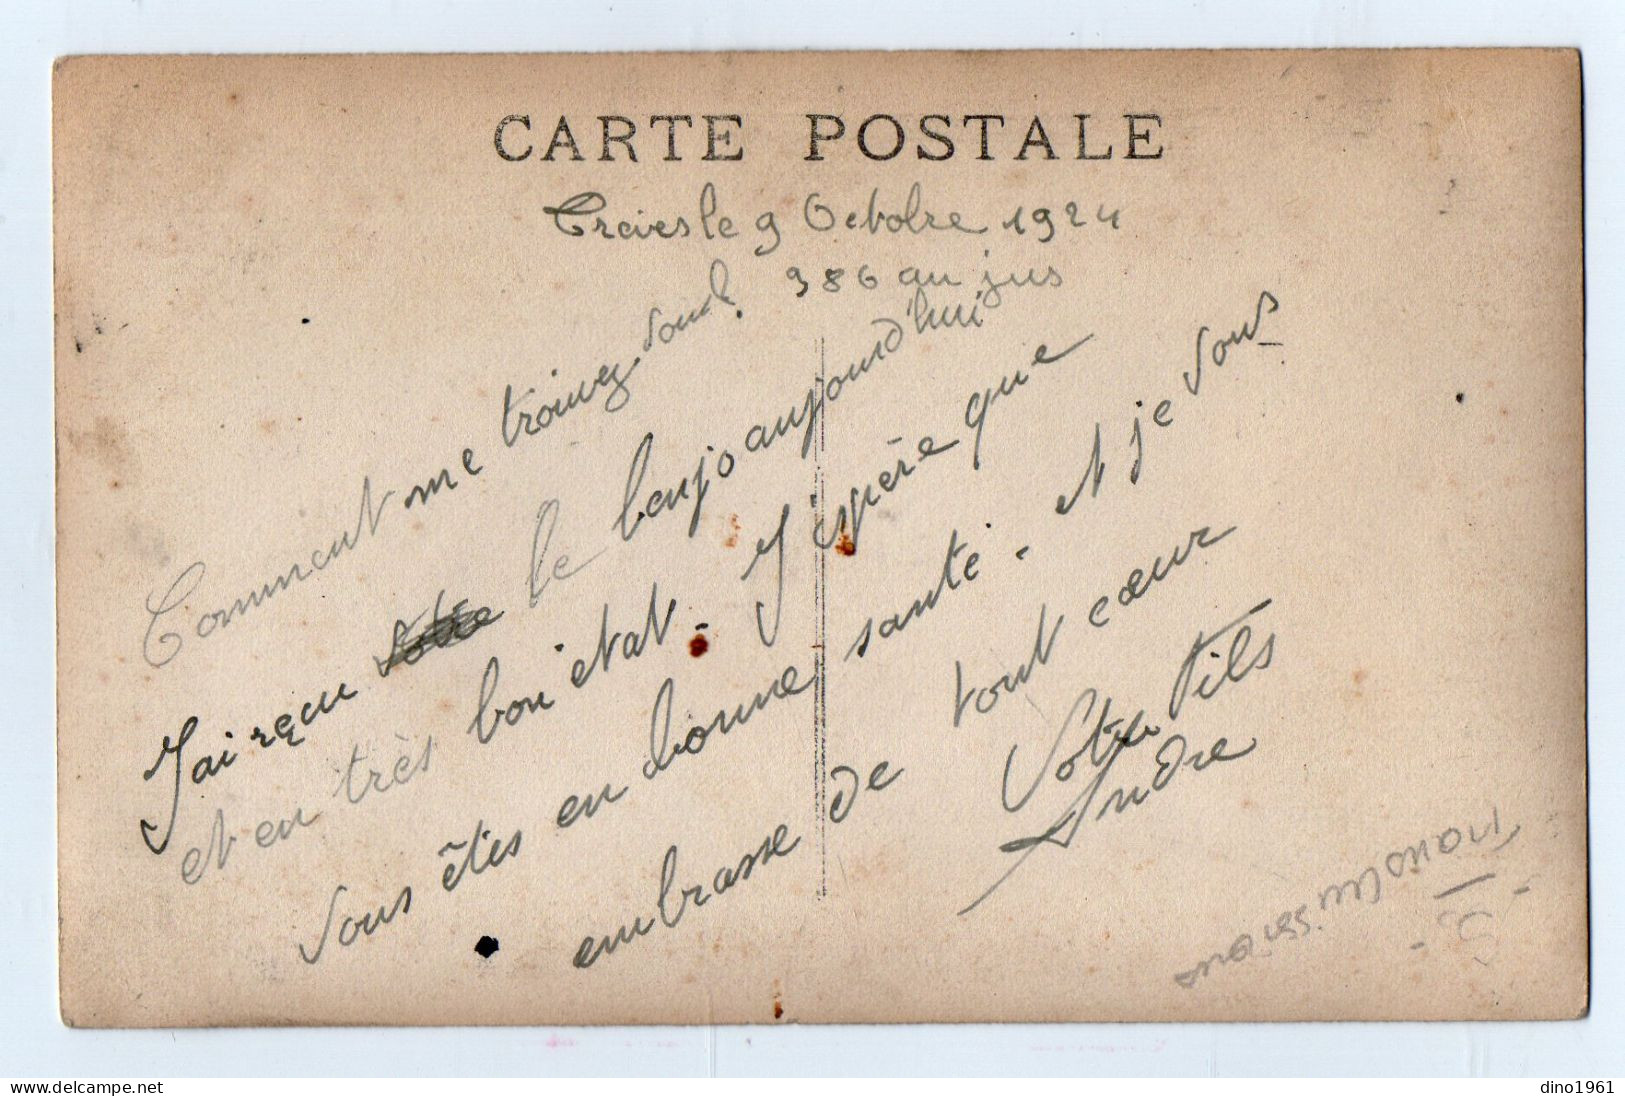 CARTE POSTALE
Treves le 9 Octobre 1924
986 au jus
Comment me trouvez vous?
J'ai reçu votre le banjo aujourd'hui
et en très bon etat. J'éspère que
vous êtes en bonne santé. et je vous
embrasse de tout cœur
Votre fils
Andre
delcampe.net
dino1961